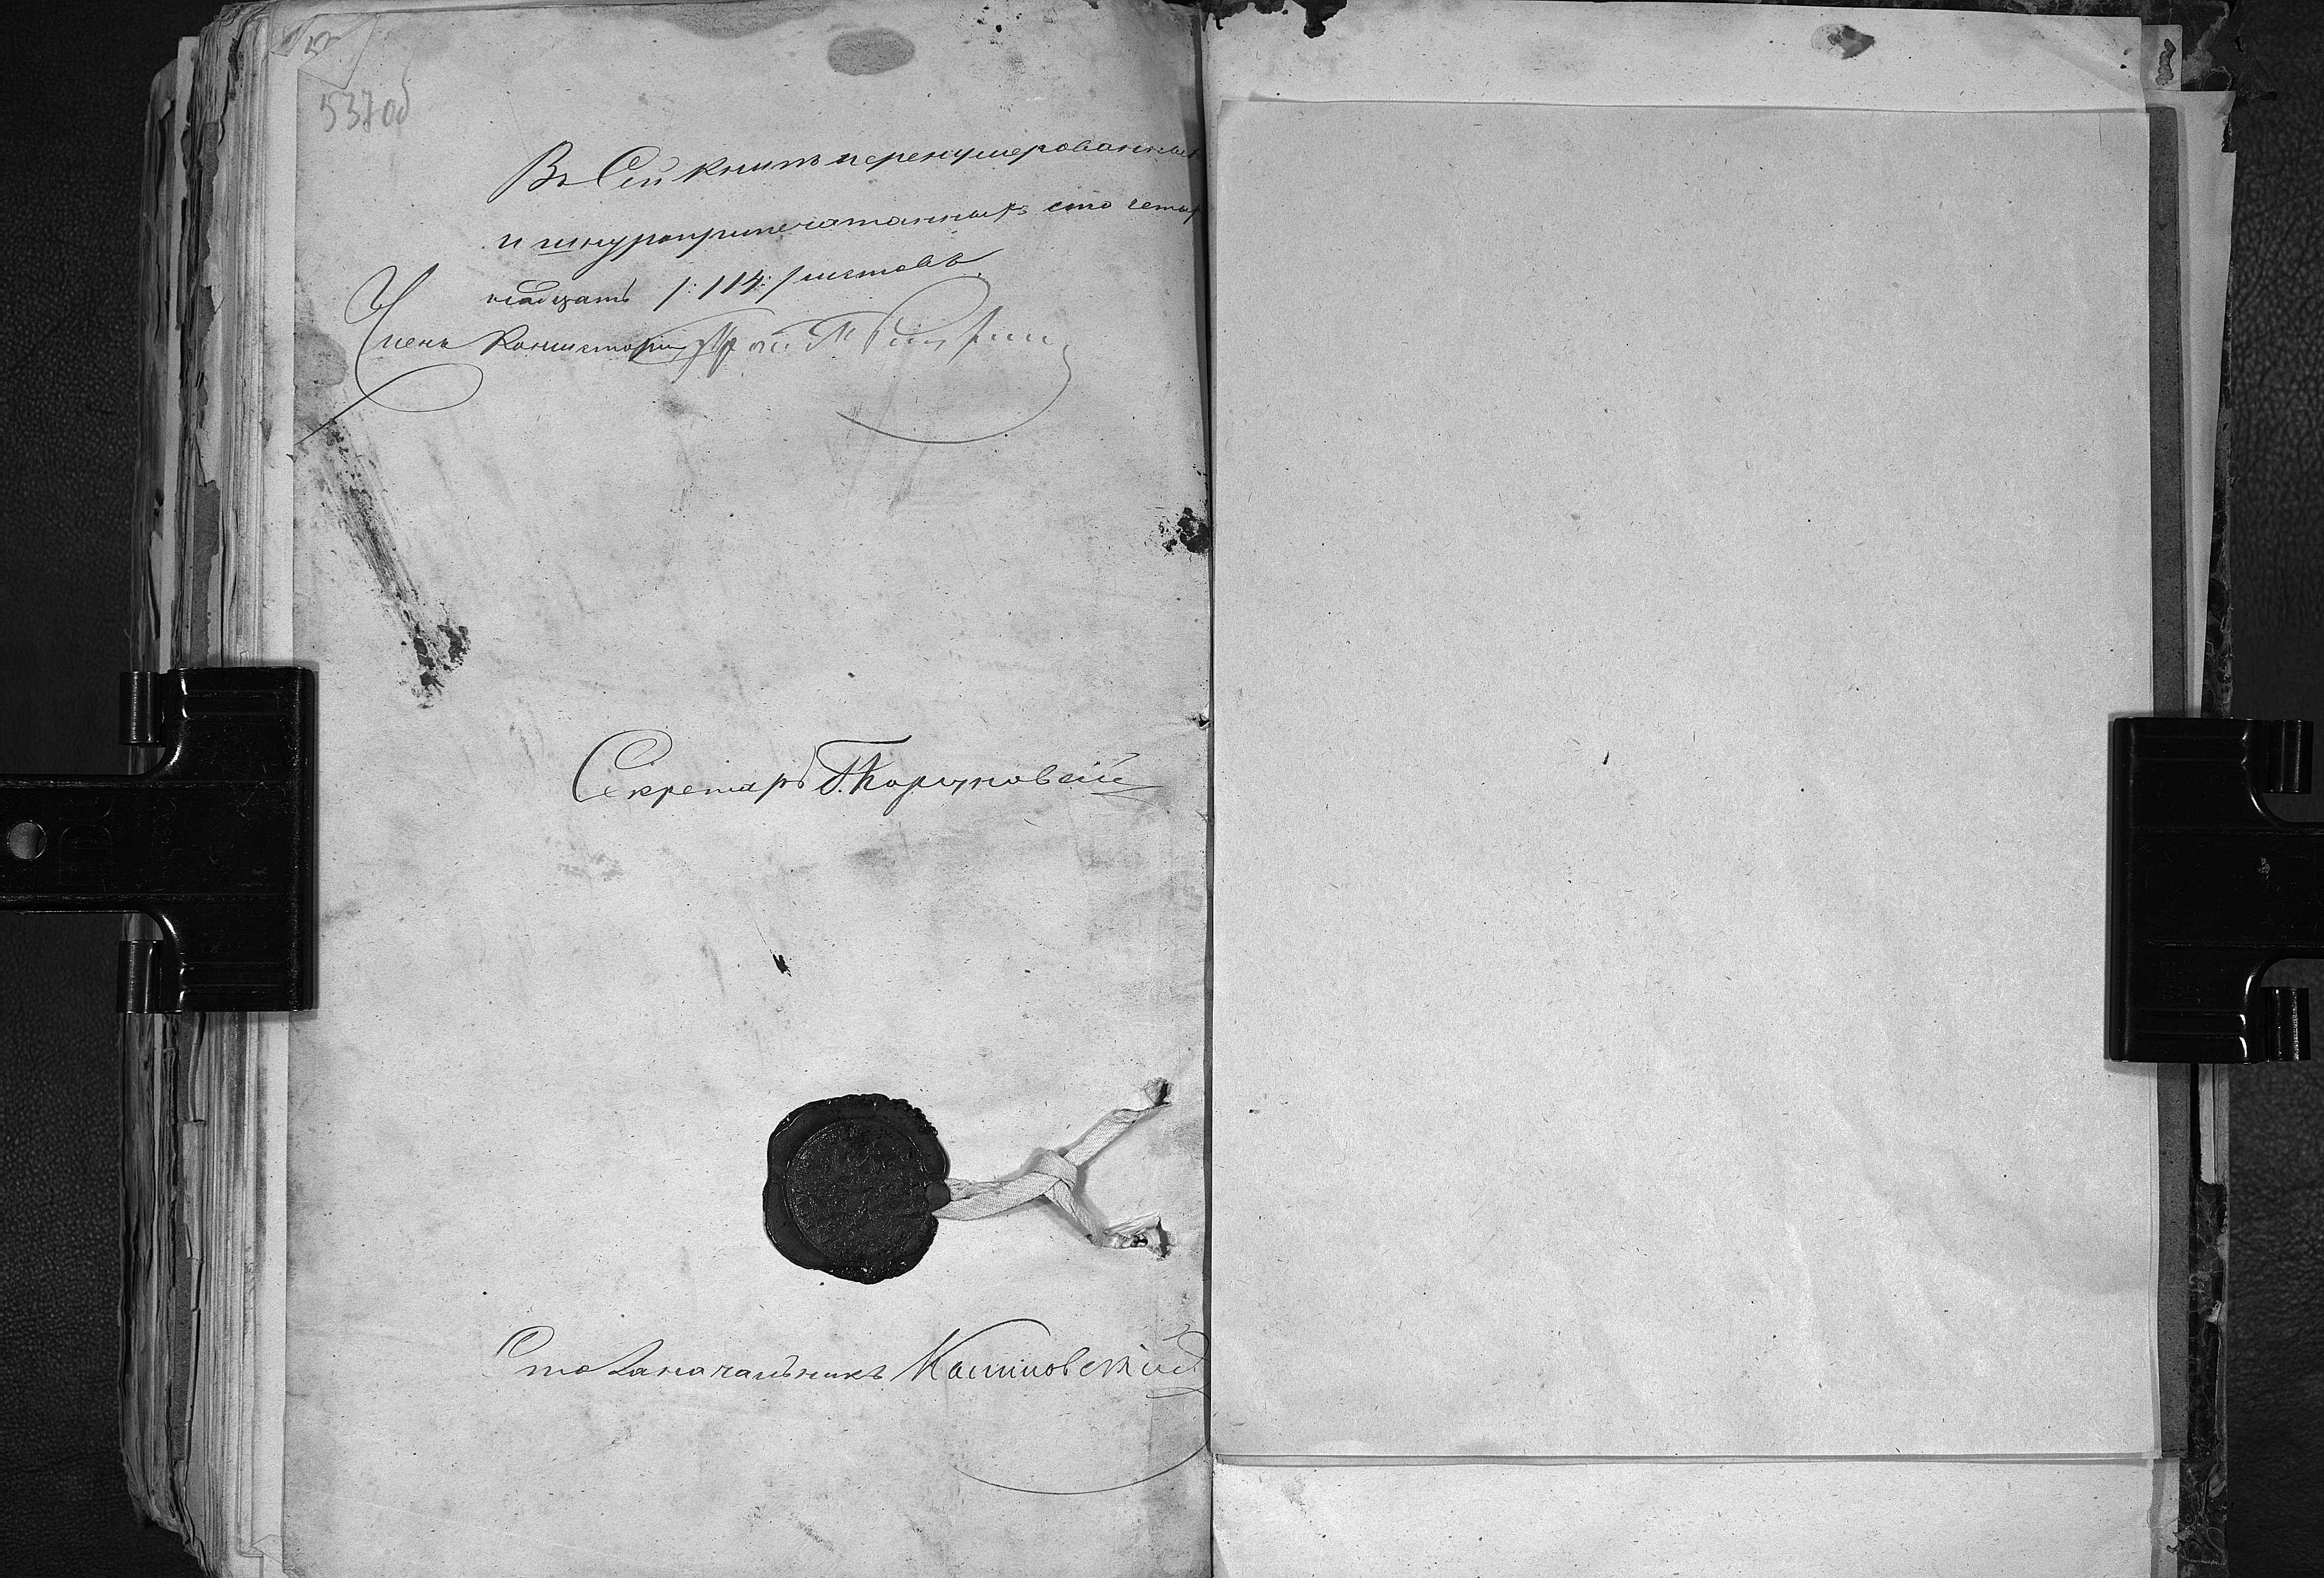 537об
Въ Сей книгѣ перенумерованныхъ
и шнуроприпечатанныхъ сто четыр
надцать /:114:/ листовъ.
Членъ Консисторіи
Секретарь
Столоначальникъ